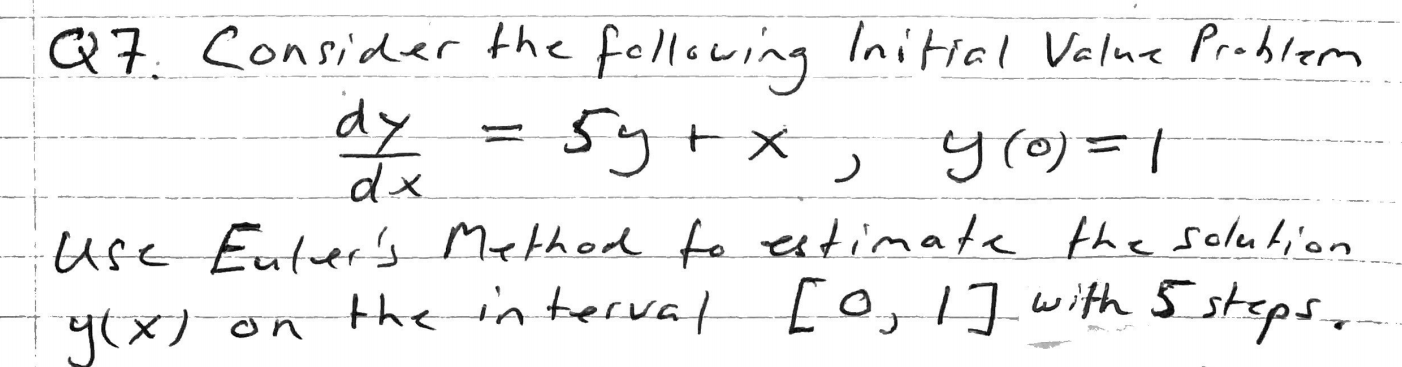 Q7. Consider the following Initial Value Problem
dy/dx = 5y + x, y(0) = 1
Use Euler's Method to estimate the solution
y(x) on the interval [0, 1] with 5 steps.